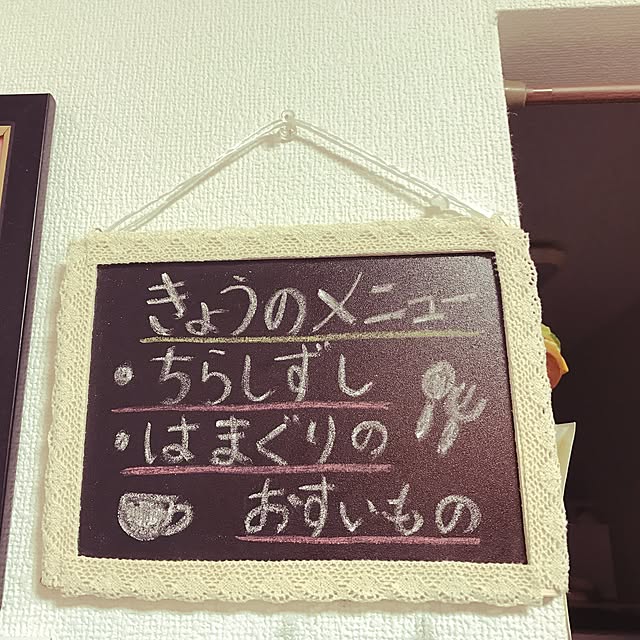 きょうのメニュー
・ちらしずし
・はまぐりの
おすいもの